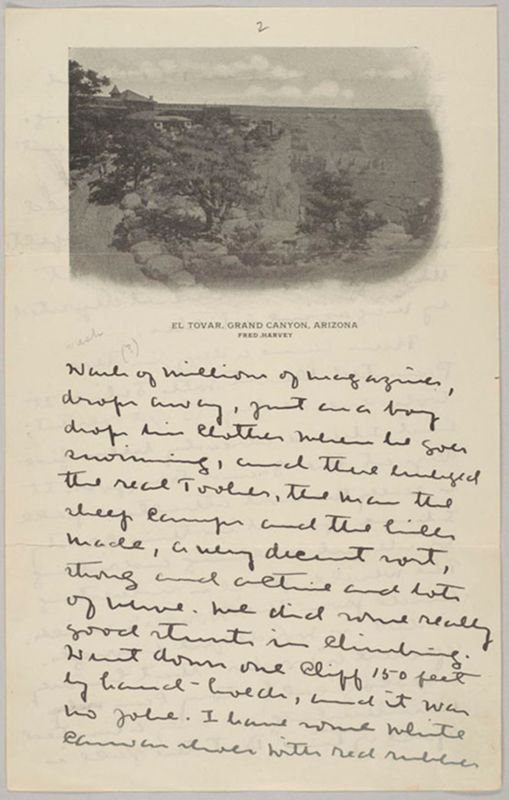 2
EL TOVAR, GRAND CANYON, ARIZONA
FRED HARVEY
wash
(?)
of millions of magazines,
drops away, just as a boy
drops his clothes when he goes
swimming, and there emerged
the real Tooker, the man the
sheep camps and the hills
made, a very decent sort,
strong and active and lots
of nerve. We did some really
good stunts in climbing.
Went down one cliff 150 feet
by hand-holds, and it was
no joke. I have some white
canvas shoes with red rubber